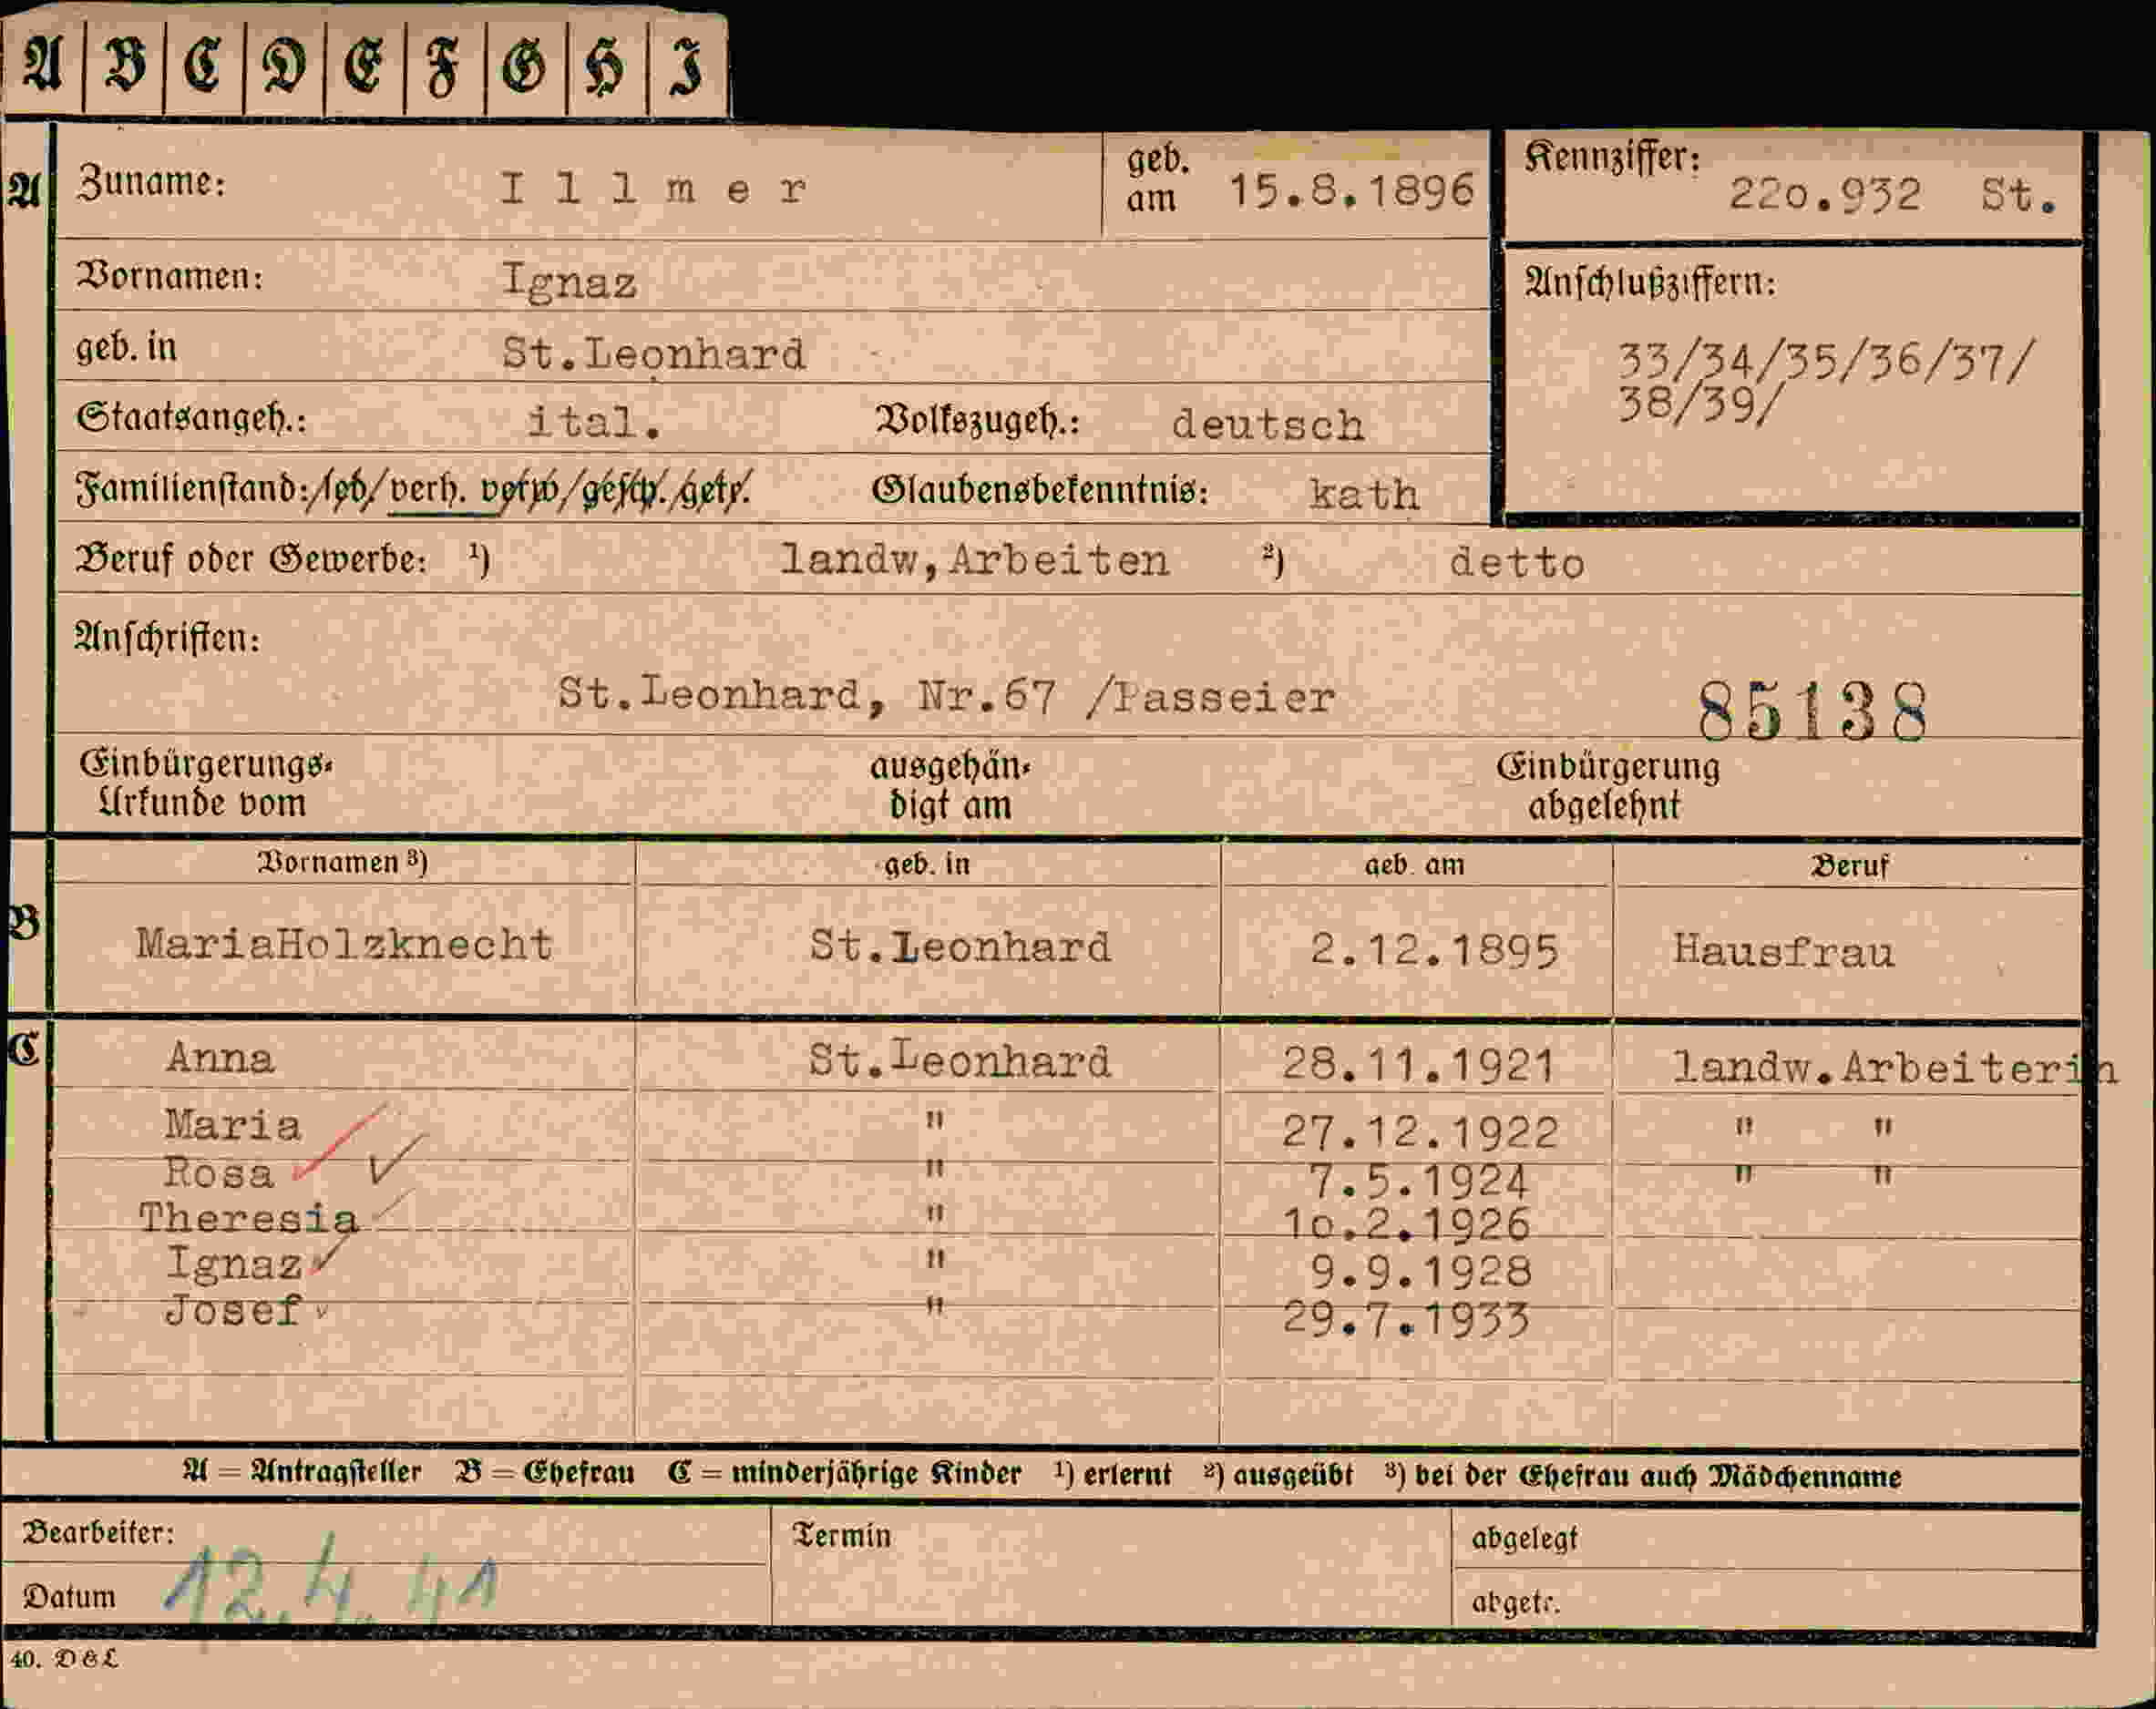 A B C D E F G H I
A Zuname: Illmer geb. am 15.8.1896 Kennziffer: 22o.932 St.
Vornamen: Ignaz Anschlußziffern:
geb. in St.Leonhard 33/34/35/36/37/
38/39/
Staatsangeh.: ital. Volkszugeh.: deutsch
Familienstand: led/ verh. verw/ gesch. /getr. Glaubensbekenntnis: kath
Beruf oder Gewerbe: ¹) landw,Arbeiten ²) detto
Anschriften:
St.Leonhard, Nr.67 /Passeier 85138
Einbürgerungs-Urkunde vom ausgehän-digt am Einbürgerung abgelehnt
Vornamen ³) geb. in geb. am Beruf
B MariaHolzknecht St.Leonhard 2.12.1895 Hausfrau
C Anna St.Leonhard 28.11.1921 landw.Arbeiterin
Maria " 27.12.1922 " "
Rosa " 7.5.1924 " "
Theresia " 1o.2.1926
Ignaz " 9.9.1928
Josef " 29.7.1933
A = Antragsteller B = Ehefrau C = minderjährige Kinder ¹) erlernt ²) ausgeübt ³) bei der Ehefrau auch Mädchenname
Bearbeiter: Termin abgelegt
Datum 12.4.41 abgetr.
40. D&L